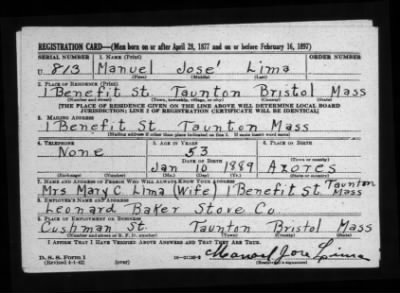 REGISTRATION CARD—(Men born on or after April 28, 1877 and on or before February 16, 1897)
SERIAL NUMBER 1. NAME (Print) ORDER NUMBER
U 813 Manuel José Lima
(First) (Middle) (Last)
2. PLACE OF RESIDENCE (Print)
1 Benefit St. Taunton Bristol Mass
(Number and street) (Town, township, village, or city) (County) (State)
[THE PLACE OF RESIDENCE GIVEN ON THE LINE ABOVE WILL DETERMINE LOCAL BOARD
JURISDICTION; LINE 2 OF REGISTRATION CERTIFICATE WILL BE IDENTICAL]
3. MAILING ADDRESS
1 Benefit St. Taunton Mass
[Mailing address if other than place indicated on line 2. If same insert word same]
4. TELEPHONE 5. AGE IN YEARS 6. PLACE OF BIRTH
None 53
DATE OF BIRTH (Town or county)
Jan 10 1889 Azores
(Exchange) (Number) (Mo.) (Day) (Yr.) (State or country)
7. NAME AND ADDRESS OF PERSON WHO WILL ALWAYS KNOW YOUR ADDRESS
Mrs Mary C Lima (Wife) 1 Benefit St. Taunton Mass
8. EMPLOYER'S NAME AND ADDRESS
Leonard Baker Stove Co.
9. PLACE OF EMPLOYMENT OR BUSINESS
Cushman St. Taunton Bristol Mass
(Number and street or R. F. D. number) (Town) (County) (State)
I AFFIRM THAT I HAVE VERIFIED ABOVE ANSWERS AND THAT THEY ARE TRUE.
D. S. S. Form 1
(Revised 4-1-42) (over) Manuel Jose Lima